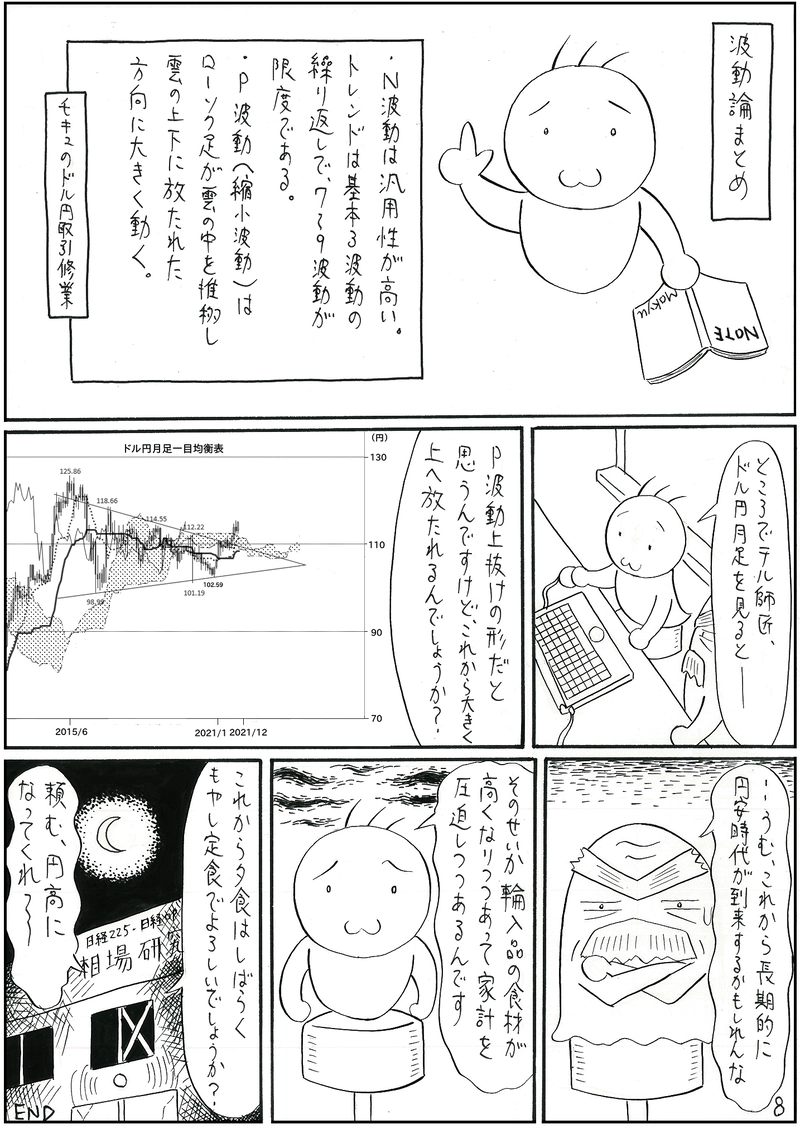 波動論まとめ
・N波動は汎用性が高い。
トレンドは基本3波動の
繰り返しで、7〜9波動が
限度である。
・P波動（縮小波動）は
ローソク足が雲の中を推移し
雲の上下に放たれた
方向に大きく動く。
モキュのドル円取引修業
Mokyu
NOTE
ところでテル師匠、
ドル円月足を見ると──
P波動上抜けの形だと
思うんですけど、これから大きく
上へ放たれるんでしょうか？
ドル円月足一目均衡表
(円)
130
125.86
118.66
114.55
112.22
110
102.59
101.19
98.95
90
70
2015/6
2021/1
2021/12
…うむ、これから長期的に
円安時代が到来するかもしれんな
そのせいか輸入品の食材が
高くなりつつあって家計を
圧迫しつつあるんです
これから夕食はしばらく
もやし定食でよろしいでしょうか？
頼む、円高に
なってくれ〜
日経225・日経
相場研究
END
8